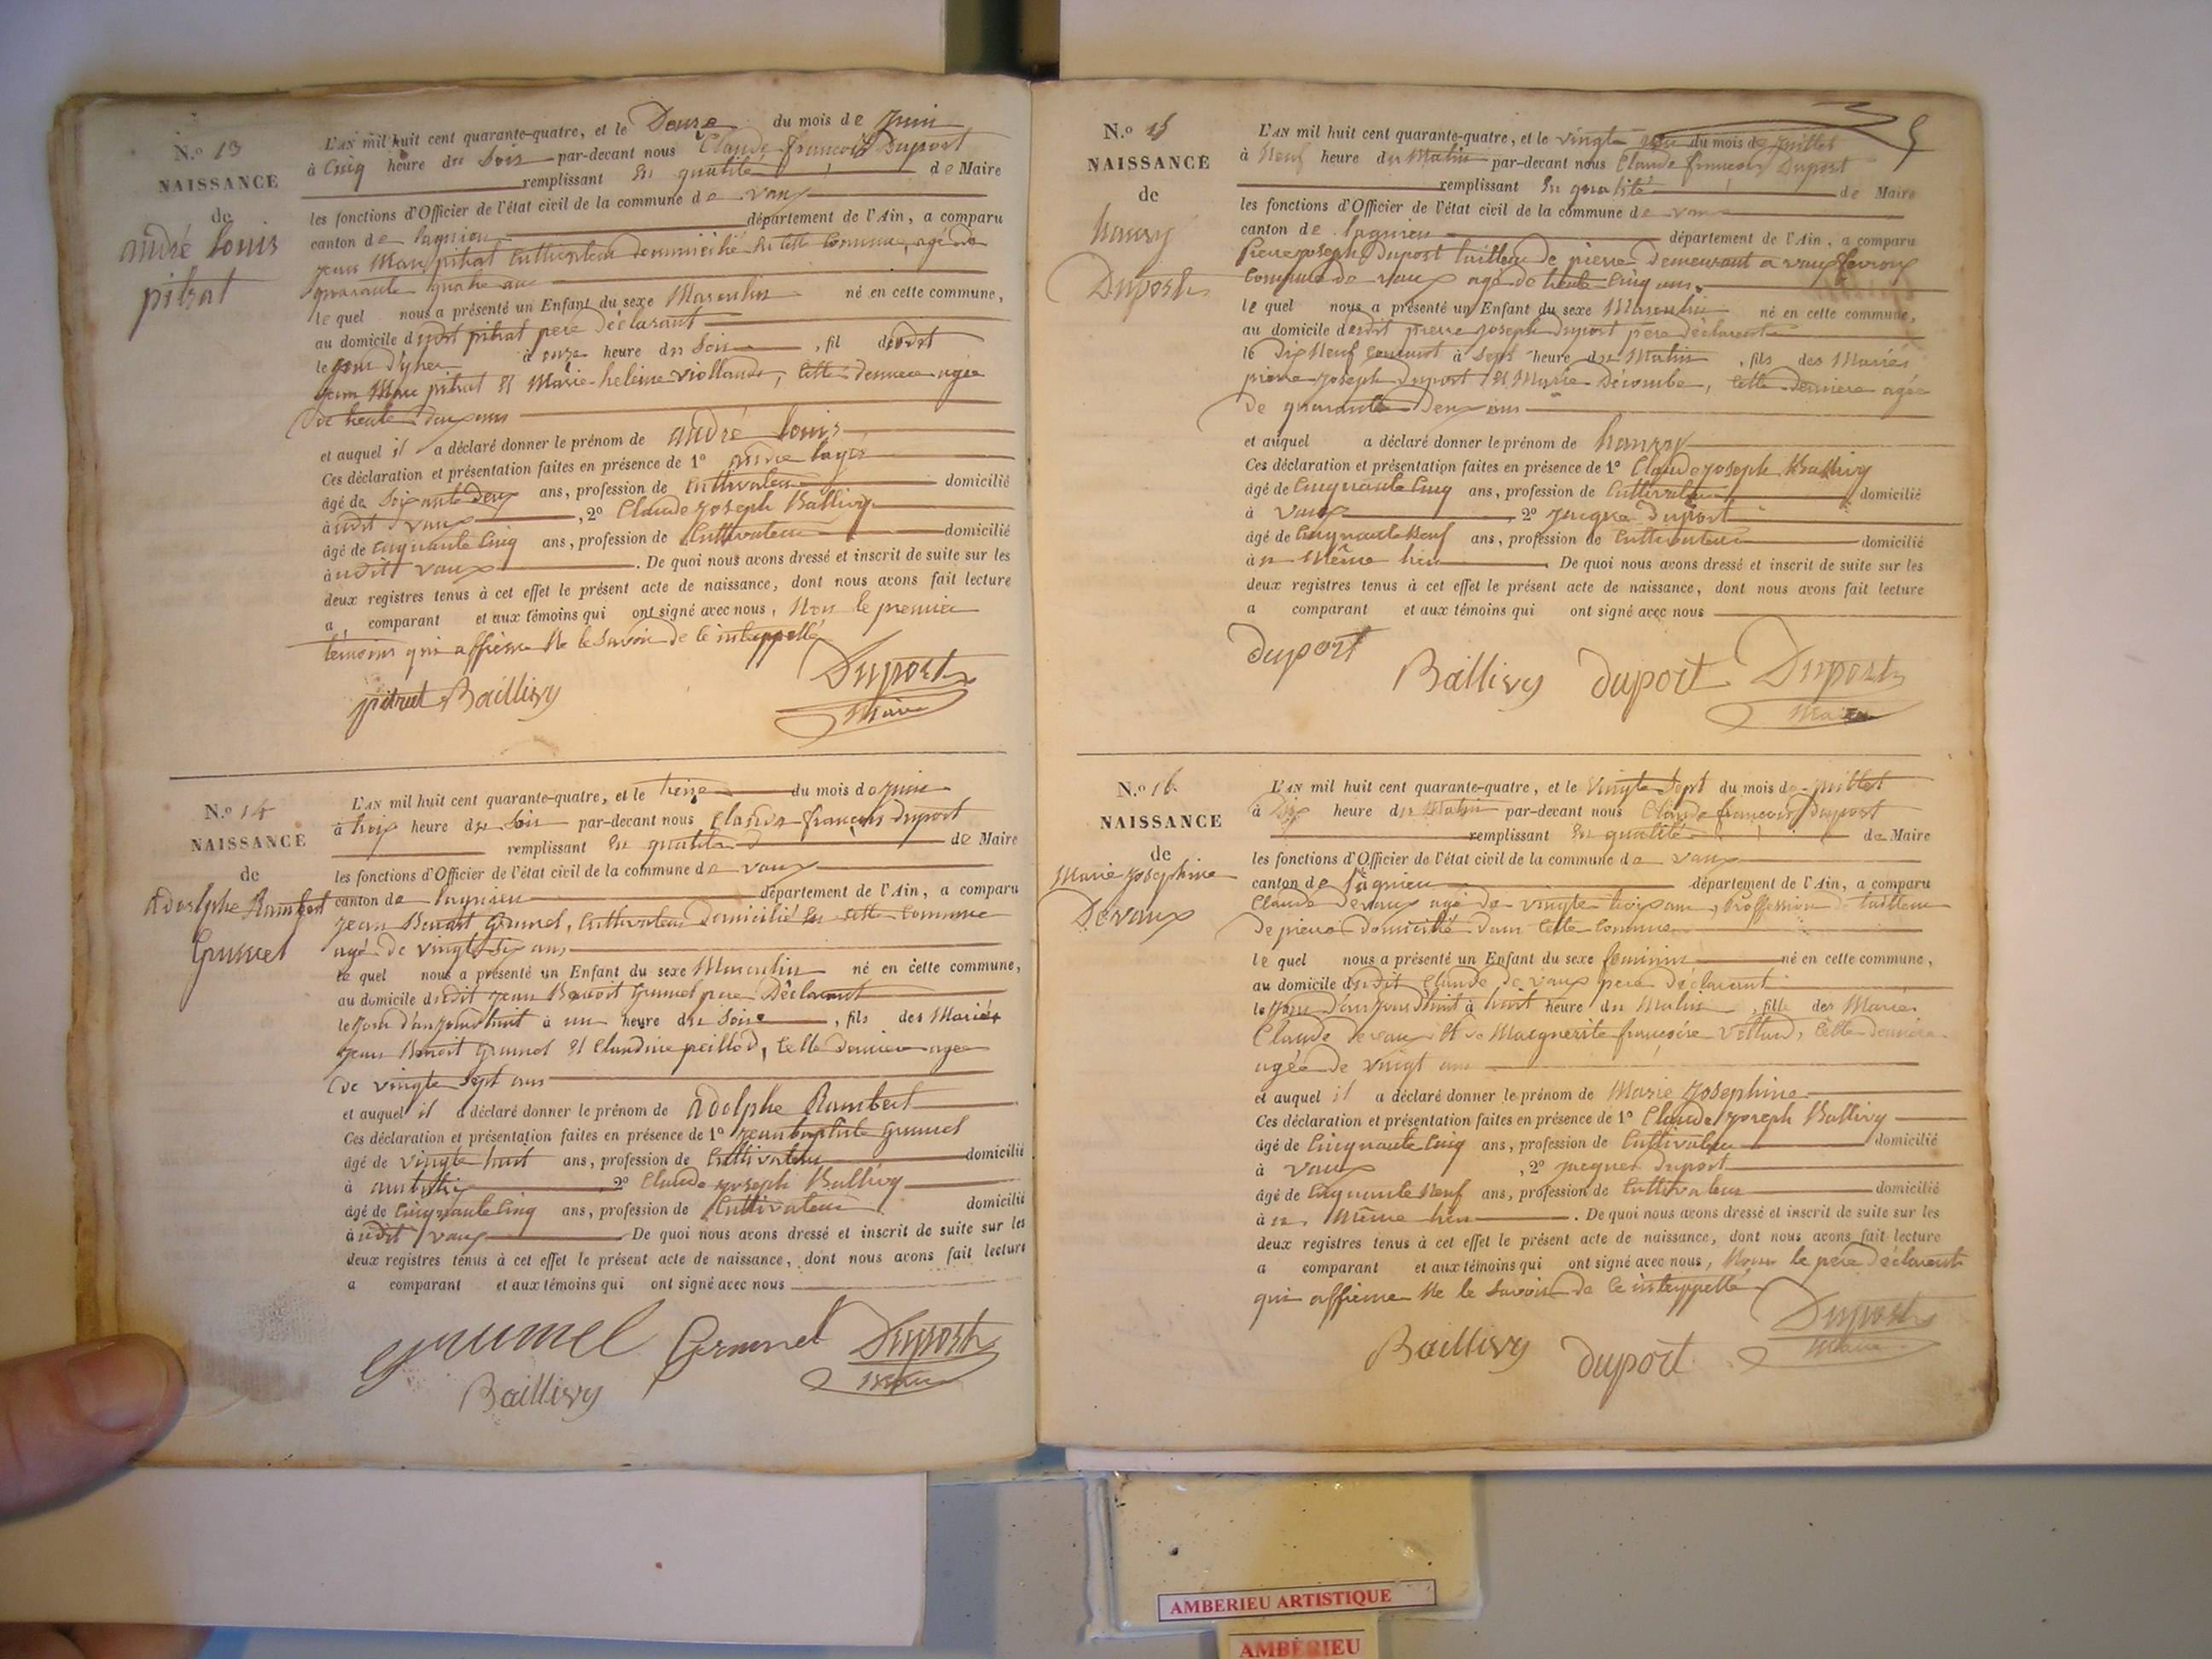 N.º 13
NAISSANCE
de
andré louis
pitrat
L'AN mil huit cent quarante-quatre, et le Douze du mois de juin
à Cinq heure du Soir par-devant nous Claude françois Duport
remplissant en qualité de Maire
les fonctions d'Officier de l'état civil de la commune de vaux
canton de lagnieu département de l'Ain, a comparu
jean Marc pitrat Cultivateur domicilié en cette Commune, agé de
quarante quatre ans
le quel nous a présenté un Enfant du sexe Masculin né en cette commune,
au domicile dudit pitrat père déclarant
le jour d'hier à onze heure du Soir, fil dudit
jean Marc pitrat et Marie helène viollande, cette derniere agée
de trente deux ans
et auquel il a déclaré donner le prénom de andré louis
Ces déclaration et présentation faites en présence de 1º andré
âgé de Soixante deux ans, profession de Cultivateur domicilié
à udit vaux, 2º Claude Joseph Ballivy
âgé de Cinquante Cinq ans, profession de Cultivateur domicilié
à udit vaux. De quoi nous avons dressé et inscrit de suite sur les
deux registres tenus à cet effet le présent acte de naissance, dont nous avons fait lecture
a comparant et aux témoins qui ont signé avec nous, Non le premier
témoins qui affirme Ne le Savoir de ce interppellé
pitrat Baillivy Duport
Maire
N.º 14
NAISSANCE
de
Adolphe Rambert
Grumel
L'AN mil huit cent quarante-quatre, et le treize du mois de juin
à trois heure du Soir par-devant nous Claude françois Duport
remplissant en qualité de Maire
les fonctions d'Officier de l'état civil de la commune de vaux
canton de lagnieu département de l'Ain, a comparu
jean Benoit Grumel, Cultivateur Domicilié en cette Commune
agé de vingt Six ans
le quel nous a présenté un Enfant du sexe Masculin né en cette commune,
au domicile dudit jean Benoit Grumel pere Déclarant
le jour d'aujourdhuit à un heure du Soire, fils des Mariés
jean Benoit Grumel et Claudine peillod, Cette derniere agée
de vingte Sept ans
et auquel il a déclaré donner le prénom de Adolphe Rambert
Ces déclaration et présentation faites en présence de 1º jean baptiste Grumel
âgé de vingte huit ans, profession de Cultivateur domicilié
à, 2º Claude joseph Ballivy
âgé de Cinquante Cinq ans, profession de Cultivateur domicilié
à udit vaux De quoi nous avons dressé et inscrit de suite sur les
deux registres tenus à cet effet le présent acte de naissance, dont nous avons fait lecture
a comparant et aux témoins qui ont signé avec nous
Grumel Grumel Duport
Baillivy Maire
5
N.º 15
NAISSANCE
de
hanry
Duport
L'AN mil huit cent quarante-quatre, et le vingte du mois de juillet
à Neuf heure du Matin par-devant nous Claude francois Duport
remplissant en qualité de Maire
les fonctions d'Officier de l'état civil de la commune de vaux
canton de lagnieu département de l'Ain, a comparu
Pierre joseph Duport tailleur de pierre Demeurant a vaux fevroux
Commune de vaux agé de trente Cinq ans.
le quel nous a présenté un Enfant du sexe Masculin né en cette commune,
au domicile dudit pierre joseph Duport père déclarant
le Dix Neuf courant à Sept heure du Matin, fils des Mariés
pierre joseph Duport et Marie Décombe, Cette Derniere agée
de quarante Deux ans
et auquel a déclaré donner le prénom de hanry
Ces déclaration et présentation faites en présence de 1º Claude joseph Ballivy
âgé de Cinquante Cinq ans, profession de Cultivateur domicilié
à vaux, 2º jacque Duport
âgé de Cinquante Neuf ans, profession de Cultivateur domicilié
à u Même lieu. De quoi nous avons dressé et inscrit de suite sur les
deux registres tenus à cet effet le présent acte de naissance, dont nous avons fait lecture
a comparant et aux témoins qui ont signé avec nous
duport Ballivy duport Duport
Maire
N.º 16
NAISSANCE
de
Marie Josephine
Devaux
L'AN mil huit cent quarante-quatre, et le Vingte Sept du mois de juillet
à Dix heure du Matin par-devant nous Claude francois Duport
remplissant en qualité de Maire
les fonctions d'Officier de l'état civil de la commune de vaux
canton de lagnieu département de l'Ain, a comparu
Claude Devaux agé de vingte trois ans, Proffession de tailleur
De pierre domicilié dans Cette Commune
le quel nous a présenté un Enfant du sexe feminin né en cette commune,
au domicile dudit Claude de vaux pere déclarant
le jour d'aujourdhuit à huit heure du Matin, fille des Mariés
Claude Devaux et Marguerite françoise Vettard, Cette derniere
agée de vingt ans
et auquel il a déclaré donner le prénom de Marie Josephine
Ces déclaration et présentation faites en présence de 1º Claude joseph Ballivy
âgé de Cinquante Cinq ans, profession de Cultivateur domicilié
à vaux, 2º jacques Duport
âgé de Cinquante Neuf ans, profession de Cultivateur domicilié
à u Même lieu. De quoi nous avons dressé et inscrit de suite sur les
deux registres tenus à cet effet le présent acte de naissance, dont nous avons fait lecture
a comparant et aux témoins qui ont signé avec nous, Non le père déclarant
qui affirme Ne le Savoir de ce interppellé
Baillivy duport Duport
Maire
AMBERIEU ARTISTIQUE
AMBÉRIEU